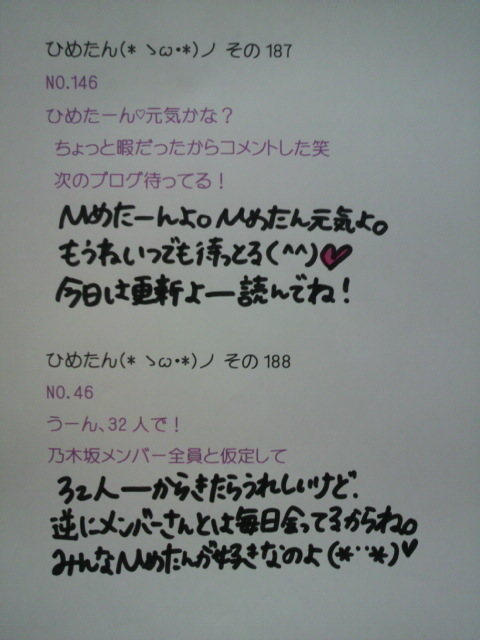 ひめたん(*ゝω・*)ノ その187
NO.146
ひめたーん♡元気かな？
ちょっと暇だったからコメントした笑
次のブログ待ってる！
ひめたーんよ。ひめたん元気よ。
もうねいつでも待っとる(^^)♥
今日は更新よー読んでね！
ひめたん(*ゝω・*)ノ その188
NO.46
うーん、32人で！
乃木坂メンバー全員と仮定して
32人ーからきたらうれしいけど、
逆にメンバーさんとは毎日会ってるからね。
みんなひめたんが好きなのよ(*¨*)♥